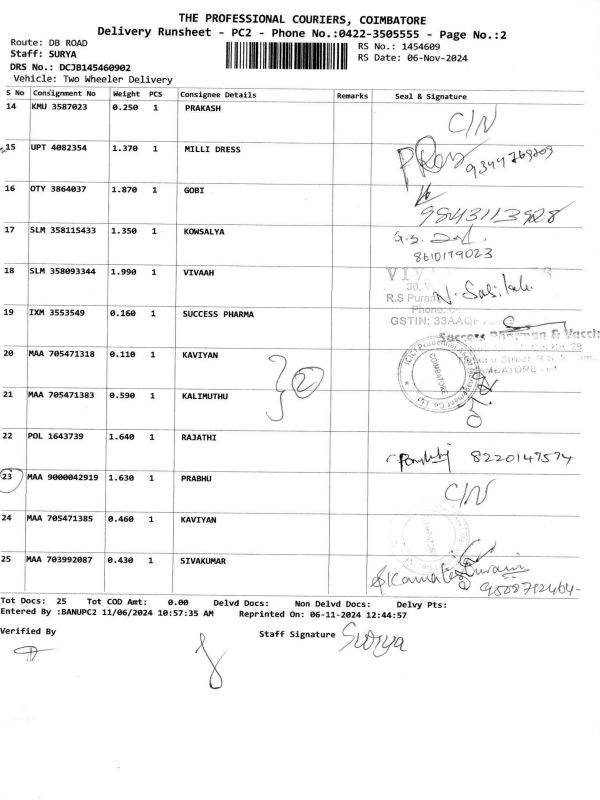 THE PROFESSIONAL COURIERS, COIMBATORE
Delivery Runsheet - PC2 - Phone No.:0422-3505555 - Page No.:2
Route: DB ROAD
RS No.: 1454609
Staff: SURYA
RS Date: 06-Nov-2024
DRS No.: DCJB145460902
Vehicle: Two Wheeler Delivery
S No Consignment No Weight PCS Consignee Details Remarks Seal & Signature
14 KMU 3587023 0.250 1 PRAKASH C/N
15 UPT 4082354 1.370 1 MILLI DRESS
16 OTY 3864037 1.870 1 GOBI
17 SLM 358115433 1.350 1 KOWSALYA
8610179023
18 SLM 358093344 1.990 1 VIVAAH
R.S Puram
Phone:
19 IXM 3553549 0.160 1 SUCCESS PHARMA
GSTIN: 33AAQF
Success Pharma & Vacci
20 MAA 705471318 0.110 1 KAVIYAN
2
ICICI Prudential Asset Management Co Ltd
COIMBATORE
21 MAA 705471383 0.590 1 KALIMUTHU
22 POL 1643739 1.640 1 RAJATHI
8220147574
23 MAA 9000042919 1.630 1 PRABHU C/N
24 MAA 705471385 0.460 1 KAVIYAN
25 MAA 703992087 0.430 1 SIVAKUMAR
Tot Docs: 25 Tot COD Amt: 0.00 Delvd Docs: Non Delvd Docs: Delvy Pts:
Entered By :BANUPC2 11/06/2024 10:57:35 AM Reprinted On: 06-11-2024 12:44:57
Verified By
Staff Signature Surya